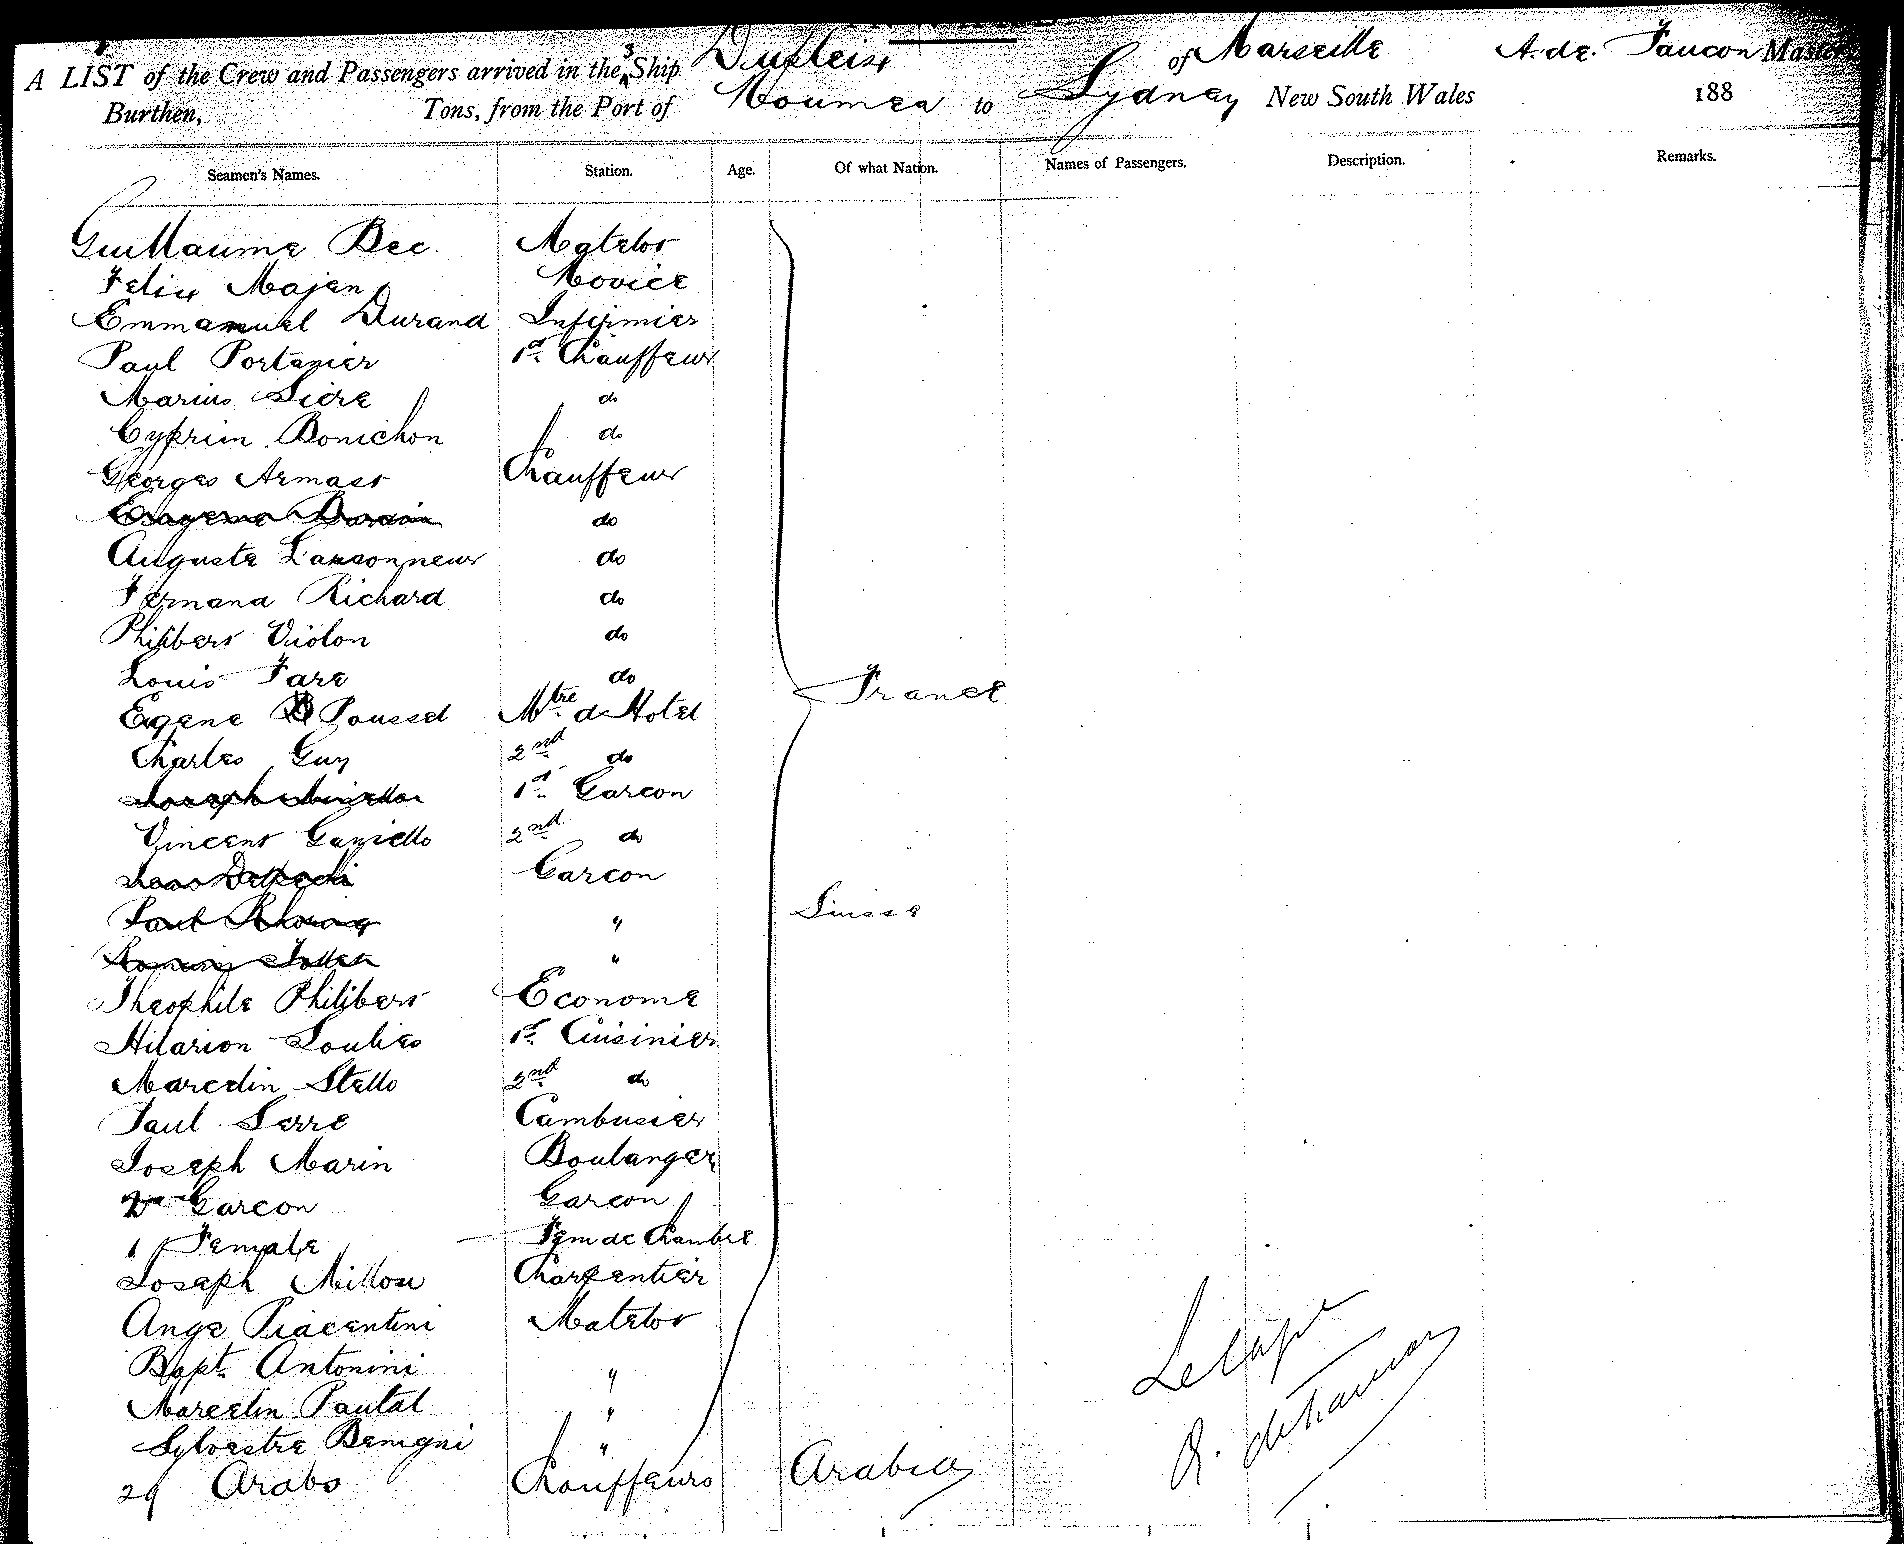 A LIST of the Crew and Passengers arrived in the S Ship Dupleix of Marseille A. de. Faucon Master
Burthen, Tons, from the Port of Noumea to Sydney New South Wales 188
Seamen's Names. Station. Age. Of what Nation. Names of Passengers. Description. Remarks.
Guillaume Bec Matelot
Felix Majen Novice
Emmanuel Durand Infirmier
Paul Portanier 1st Chauffeur
Marius Sicre do
Cyprien Bonichon do
Georges Armass Chauffeur
do
Auguste Larsonneur do
Fernand Richard do
Philibert Violon do
Louis Fare do
France
Eugene Poussel Mtre d Hotel
Charles Guy 2nd do
Joseph 1st Garcon
Vincent Gaziello 2nd do
Garcon
Paul " Suisse
"
Theophile Philibert Econome
Hilarion Soulies 1st Cuisinier
Marcelin Stello 2nd do
Paul Serre Cambusier
Joseph Marin Boulanger
Garcon Garcon
1 Female Fem de Chambre
Joseph Millou Charpentier
Ange Piacentini Matelot
Bapt. Antonini "
Marcelin Pautal "
Sylvestre Benigni "
29 Arabs Chauffeurs Arabia